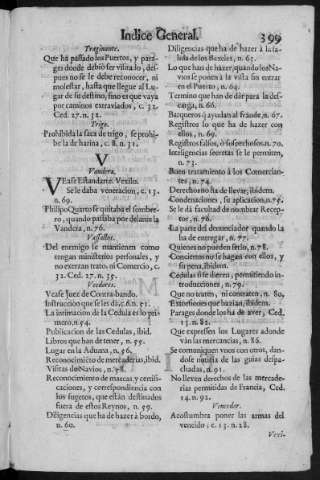 Indice General. 399
Traginante.
Que hà passado los Puertos, y para-
ges donde debiò ser visitado, des-
pues no se le debe reconocer, ni
molestar, hasta que llegue al Lu-
gar de su destino, sino es que vaya
por caminos extraviados, c. 32.
Ced. 27. n. 32.
Trigo.
Prohibida la saca de trigo, se prohi-
be la de harina, c. 8. n. 31.
V
Vandera.
VEase Estandarte. Vexilo.
Se le daba veneracion, c. 13.
n. 69.
Philipo Quarto se quitaba el sombre-
ro, quando passaba por delante la
Vandera, n. 76.
Vassallos.
Del enemigo se mantienen como
tengan ministerios personales, y
no exerzan trato, ni Comercio, c.
32. Ced. 27. n. 35.
Veedores.
Vease Juez de Contrabando.
Instruccion que se les dà, c. 6. n. 51.
La intimacion de la Cedula es lo pri-
mero, n. 54.
Publicacion de las Cedulas, ibid.
Libros que han de tener, n. 55.
Lugar en la Aduana, n. 56.
Reconocimiento de mercaderias, ibid.
Visitas de Navios, n. 58.
Reconocimiento de marcas, y certifi-
caciones, y correspondencia con
los sugetos, que estàn destinados
fuera de estos Reynos, n. 59.
Diligencias que hà de hazer à bordo,
n. 60.
Diligencias que ha de hazer à la sa-
lida de los Baxeles, n. 63.
Lo que han de hazer, quando los Na-
vios se ponen à la vista sin entrar
en el Puerto, n. 64.
Termino que han de dàr para la des-
carga, n. 66.
Barqueros q̃ ayudan al fraude, n. 67.
Registros lo que ha de hazer con
ellos, n. 69.
Registros falsos, ò sospechosos. n. 70.
Inteligencias secretas se le permiten,
n. 73.
Buen tratamiento à los Comercian-
tes, n. 74.
Derecho no ha de llevar, ibidem.
Condenaciones, su aplicacion, n. 75.
Se le dà facultad de nombrar Recep-
tor, n. 76.
La parte del denunciador quando la
ha de entregar, n. 77.
Quienes no pueden serlo, n. 78.
Conciertos no se hagan con ellos, y
su pena, ibidem.
Cedulas si se dieren, permitiendo in-
troducciones, n. 79.
Que no traten, ni contraten, n. 80.
Extorsiones que hazian, ibidem.
Parages donde los ha de aver, Ced.
13. n. 82.
Que expressen los Lugares adonde
vàn las mercancias, n. 86.
Se comuniquen unos con otros, dan-
dose noticia de las guias despa-
chadas, n. 91.
No lleven derechos de las mercade-
rias permitidas de Francia, Ced.
14. n. 92.
Vencedor.
Acostumbra poner las armas del
vencido, c. 13. n. 28.
Vexi-